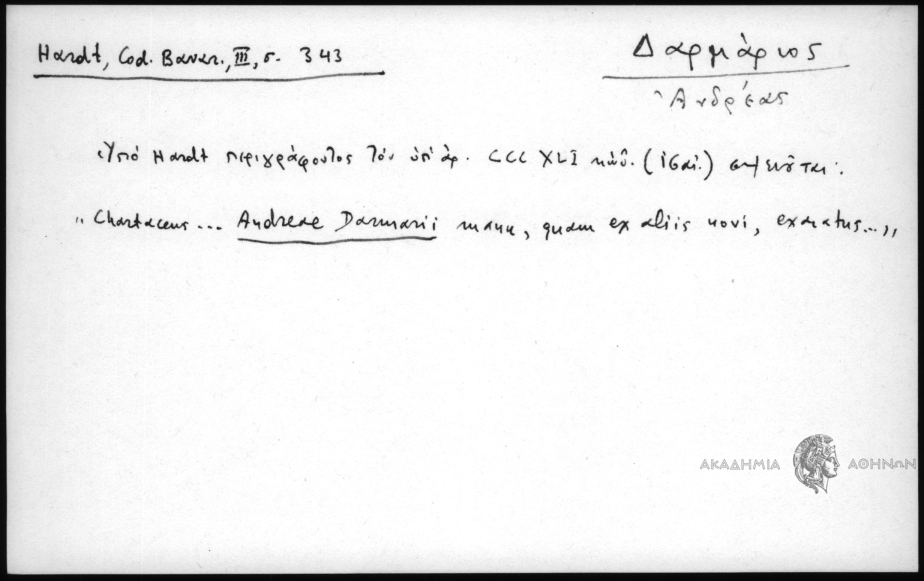 Hardt, Cod. Bavar., III, σ. 343
Δαρμάριος
Ἀνδρέας
Ὑπό Hardt περιγράφοντος τόν ὑπ' ἀρ. CCCXLI κώδ. (ις΄ αἰ.) σημειοῦται:
"Chartaceus... Andreae Darmarii manu, quam ex aliis novi, exaratus..."
ΑΚΑΔΗΜΙΑ ΑΘΗΝΩΝ